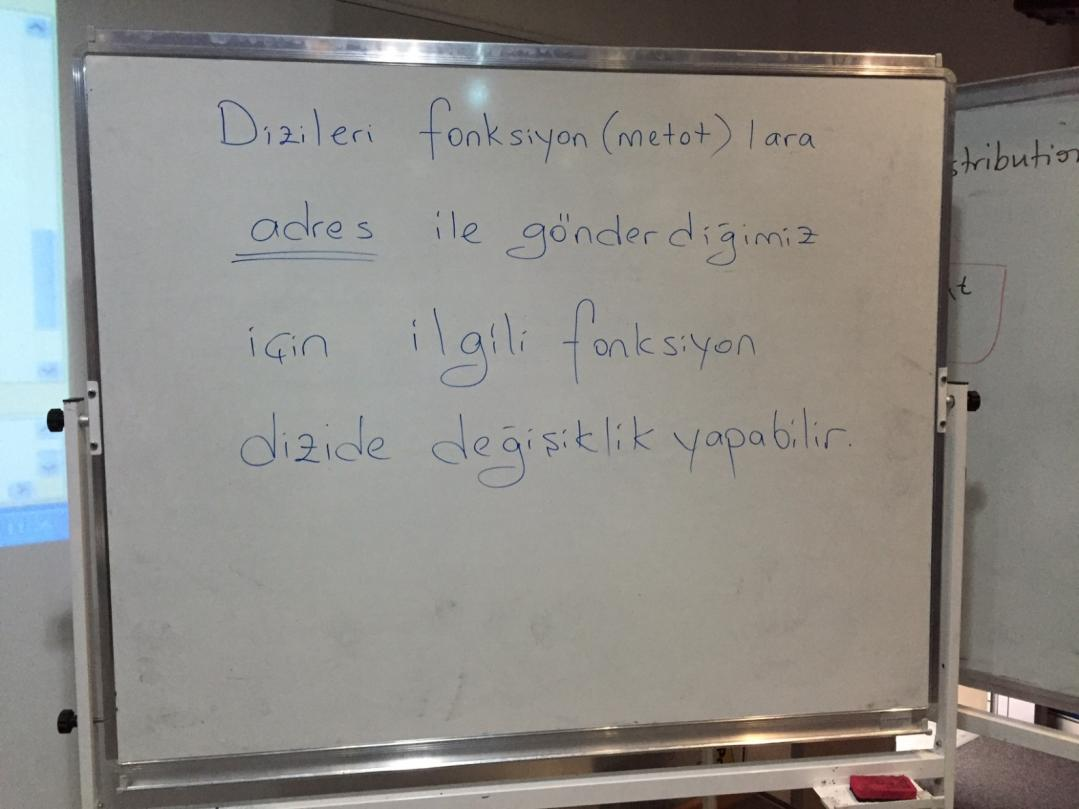 Dizileri fonksiyon (metot) lara
adres ile gönderdiğimiz
için ilgili fonksiyon
dizide değişiklik yapabilir.
stribution